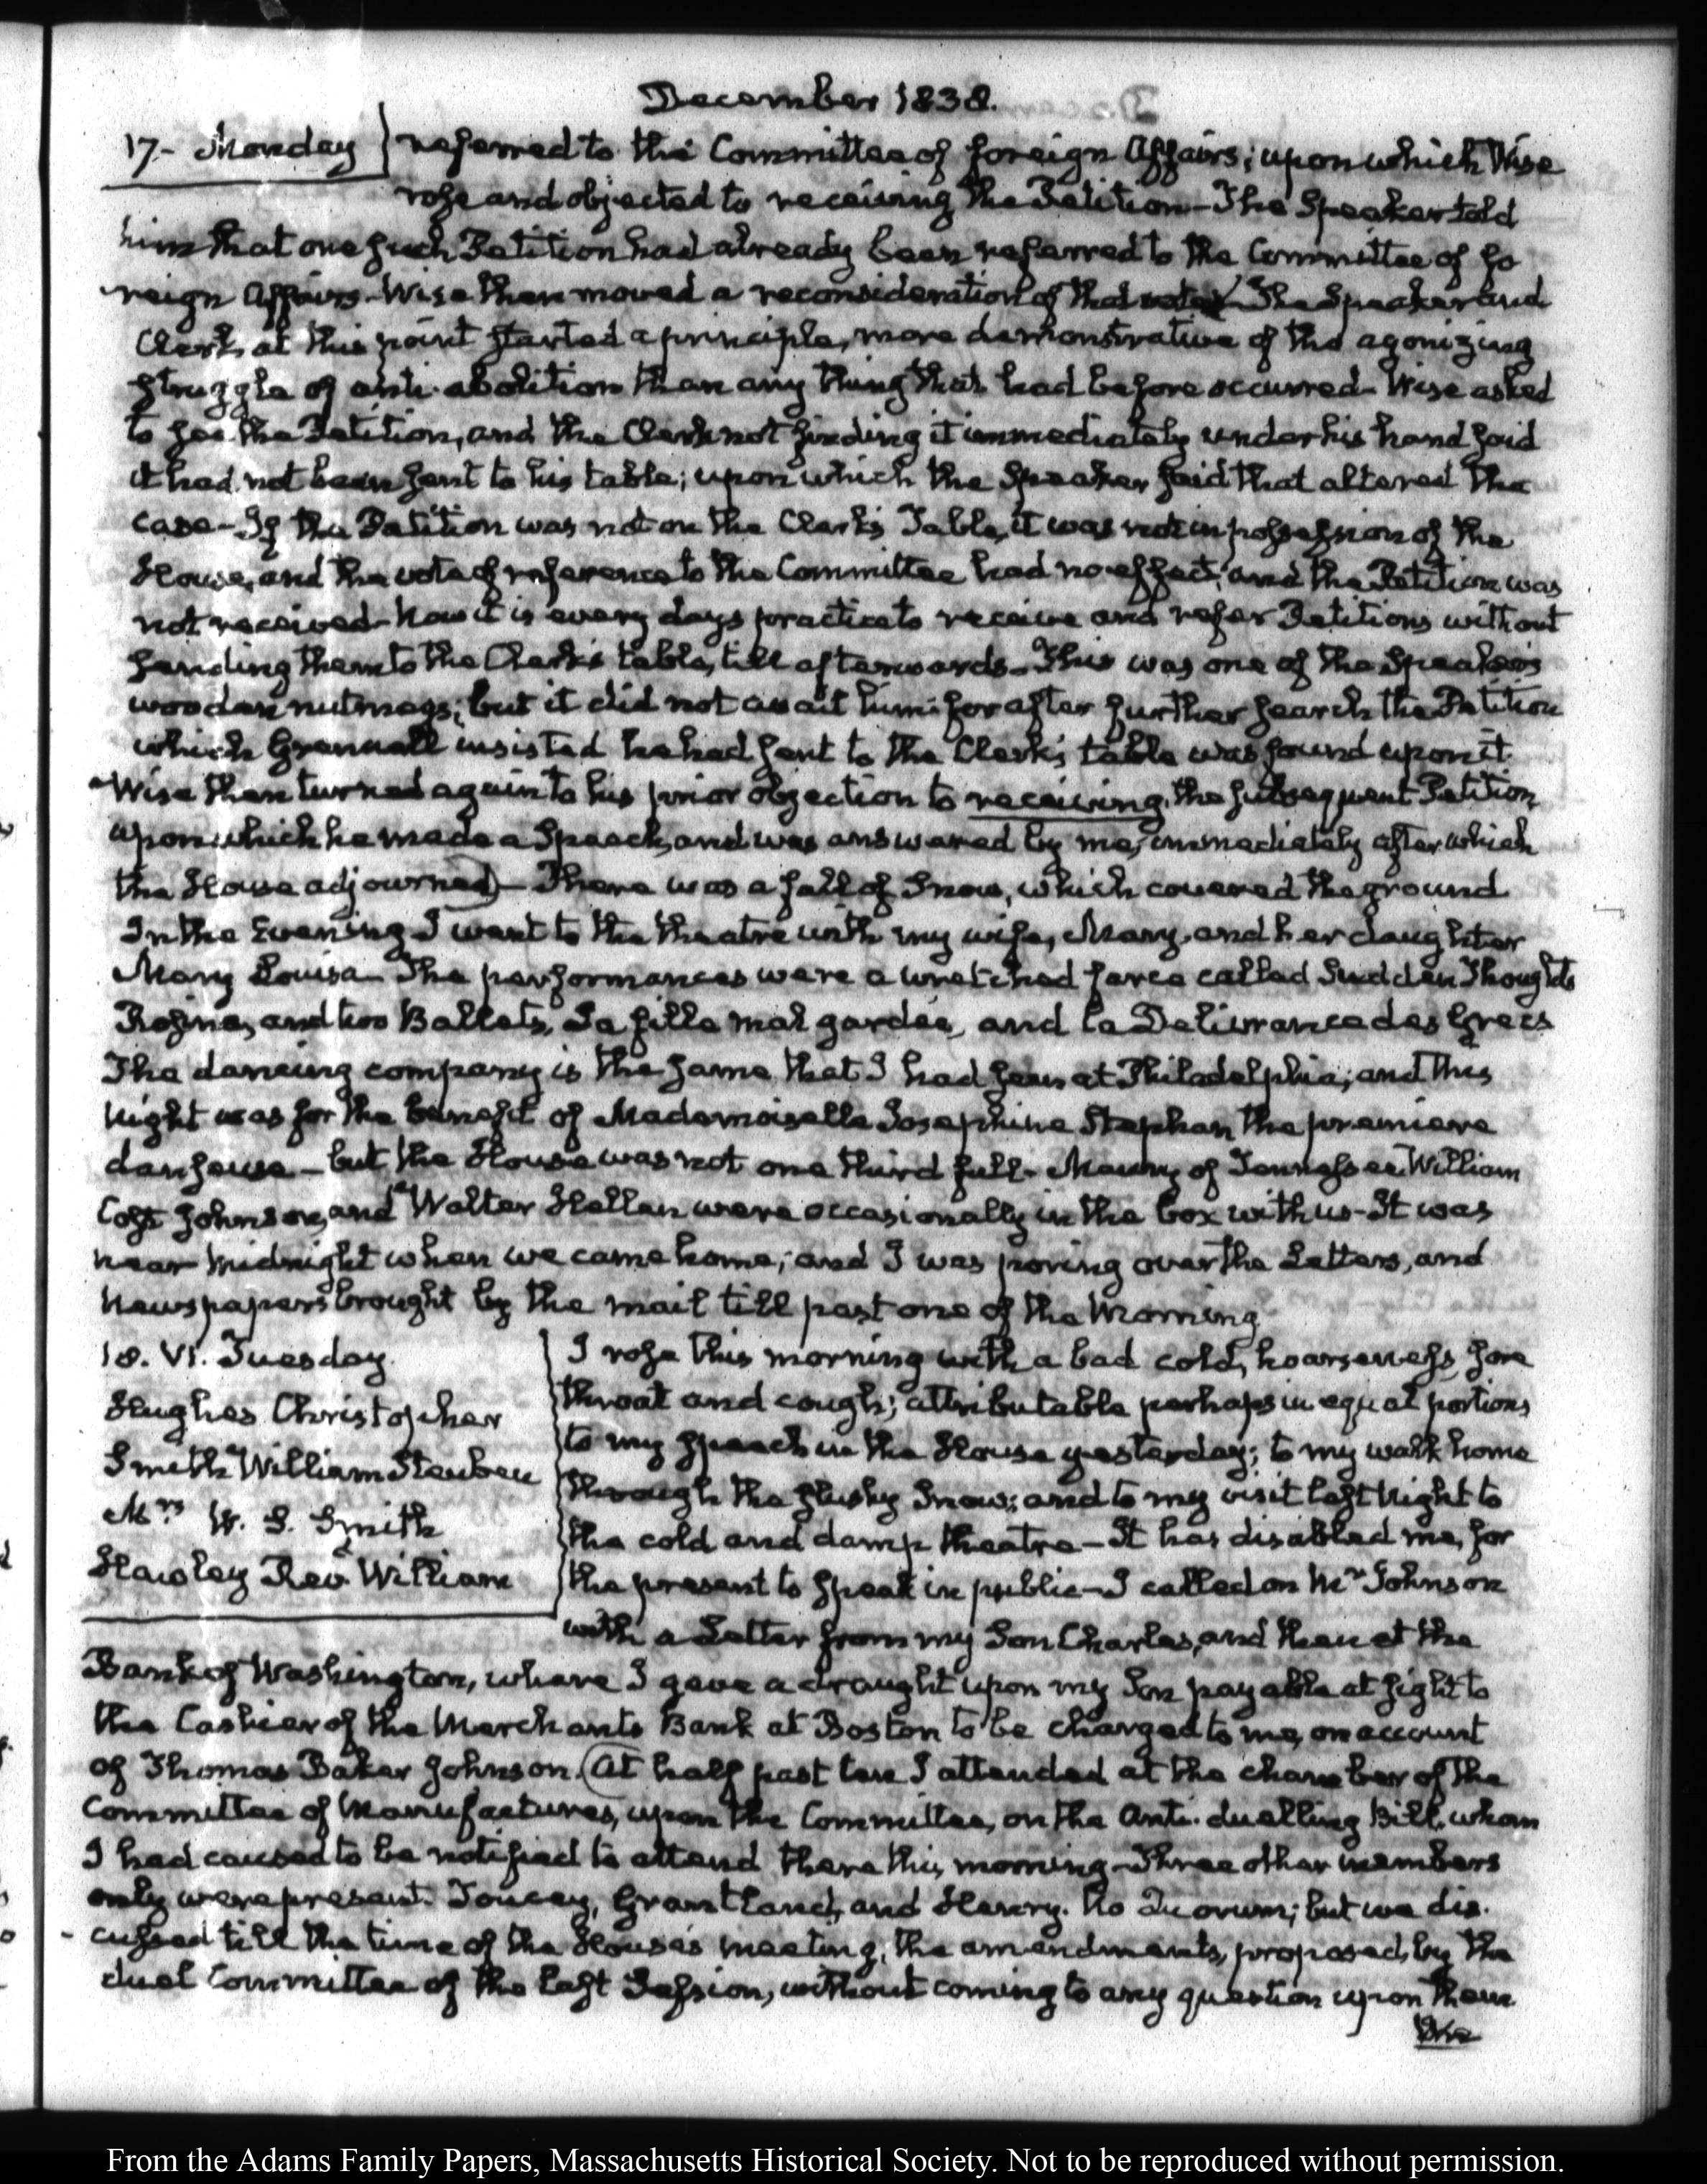 December 1838.
17.- Monday
referred to the Committee of foreign Affairs; upon which Wise
rose and objected to receiving the Petition- The Speaker told
him that one such Petition had already been referred to the Committee of fo
reign Affairs- Wise then moved a reconsideration of that vote- The Speaker and
Clerk, at this point started a principle, more demonstrative of the agonizing
struggle of anti-abolition than any thing that had before occurred- Wise asked
to see the Petition, and the Clerk not finding it immediately under his hand said
it had not been sent to his table; upon which the Speaker said that altered the
case- If the Petition was not on the Clerk's Table, it was not in possession of the
House, and the vote of reference to the Committee had no effect, and the Petition was
not received- Now it is every days practice to receive and refer Petitions without
sending them to the Clerk's table, till afterwards- This was one of the Speaker's
wooden nutmegs; but it did not avail him: for after further search the Petition
which Grennell insisted he had sent to the Clerk's table was found upon it.
Wise then turned again to his prior objection to receiving, the subsequent Petition
upon which he made a Speech, and was answered by me, immediately after which
the House adjourned)- There was a fall of Snow, which covered the ground
In the Evening I went to the theatre with my wife, Mary, and her daughter
Mary Louisa- The performances were a wretched farce called Sudden Thoughts
Rosina, and two Ballets, La fille mal gardée, and la Delivrance des Grecs
The dancing company is the same that I had seen at Philadelphia; and this
Night was for the benefit of Mademoiselle Josephine Stephan the premiere
danseuse- but the House was not one third full- Maury of Tennessee, William
Cost Johnson, and Walter Hellen were occasionally in the box with us- It was
near Midnight when we came home; and I was poring over the Letters, and
Newspapers brought by the mail till past one of the Morning
18. VI. Tuesday.
Hughes Christopher
Smith William Steuben
Mrs W. S. Smith
Hawley Revd William
I rose this morning with a bad cold, hoarseness, sore
throat and cough; attributable perhaps in equal portions
to my speech in the House yesterday; to my walk home
through the slushy Snow; and to my visit last Night to
the cold and damp theatre- It has disabled me, for
the present to speak in public- I called on Mr Johnson
with a Letter from my Son Charles, and then at the
Bank of Washington, where I gave a draught upon my Son payable at sight to
the Cashier of the Merchants Bank at Boston to be charged to me, on account
of Thomas Baker Johnson. (At half past ten I attended at the chamber of the
Committee of Manufactures, upon the Committee, on the Anti-duelling Bill, whom
I had caused to be notified to attend there this morning- Three other members
only were present. Toucey, Grantland, and Henry. No Quorum; but we dis-
cussed till the time of the House's meeting, the amendments, proposed by the
duel Committee of the last Session, without coming to any question upon them